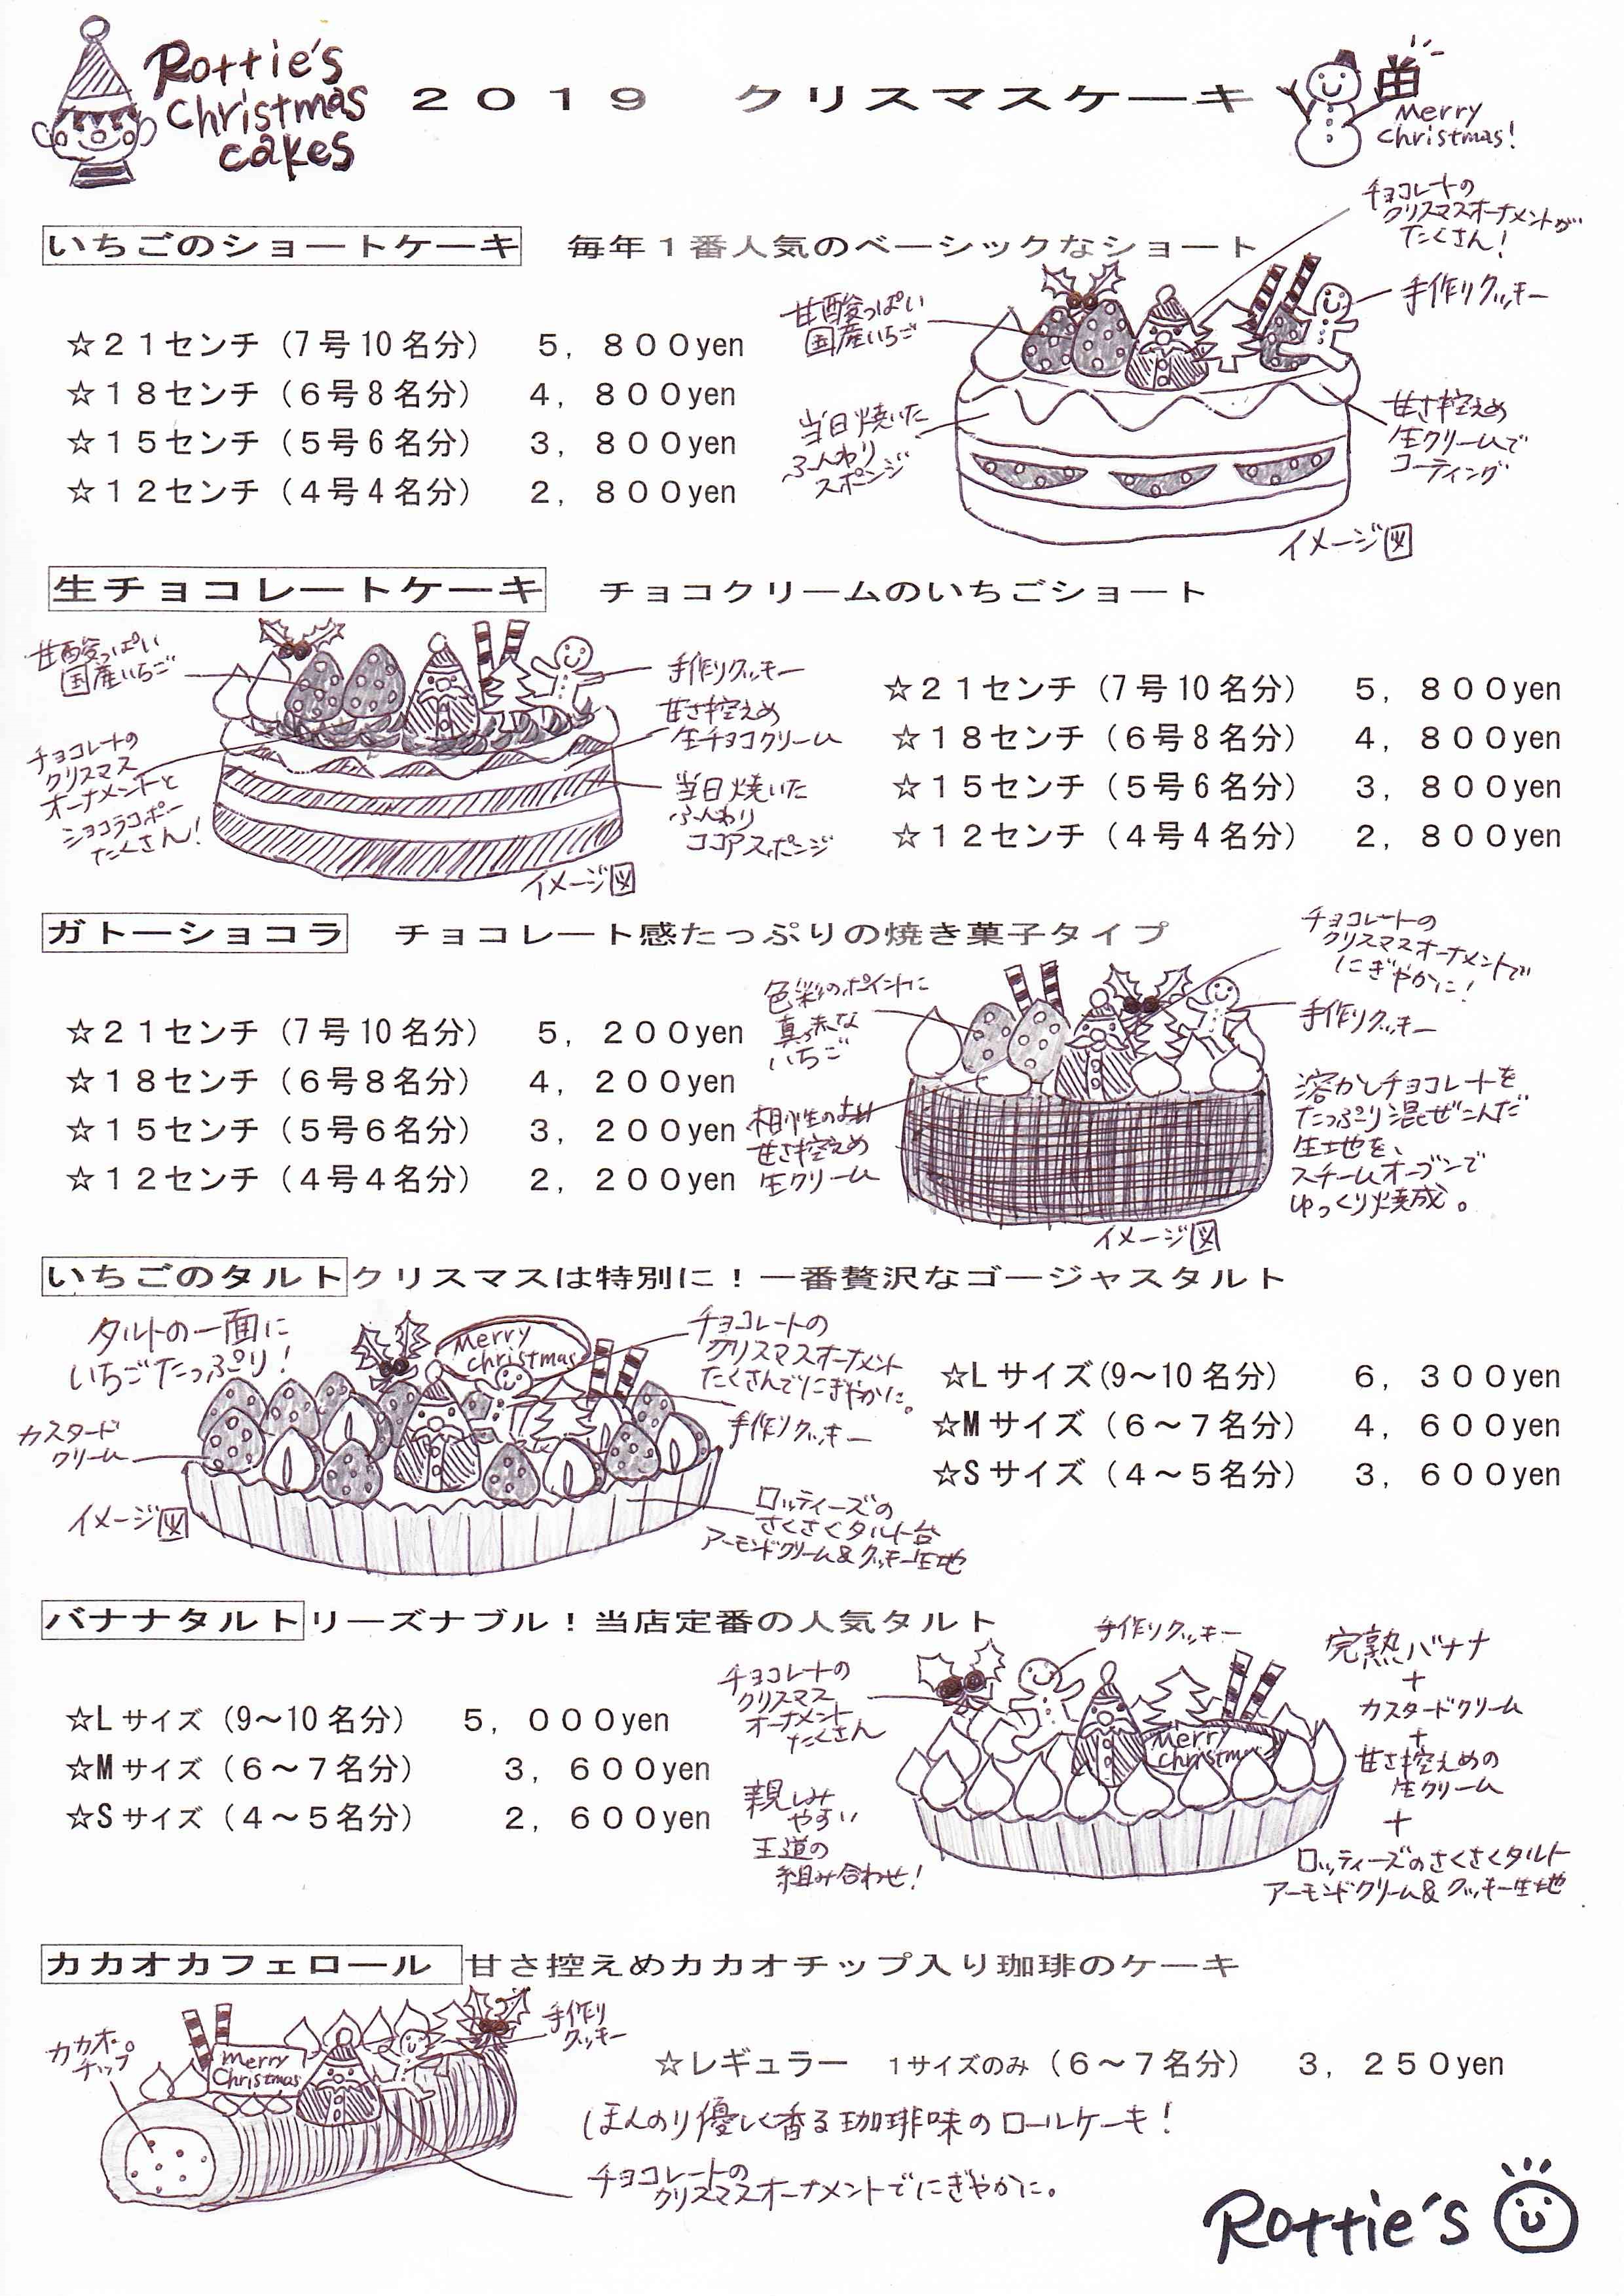 Rottie's
Christmas
cakes
2019 クリスマスケーキ
Merry
Christmas!
いちごのショートケーキ 毎年1番人気のベーシックなショート
チョコレートの
クリスマスオーナメントが
たくさん!
手作りクッキー
甘酸っぱい
国産いちご
☆21センチ(7号10名分) 5,800yen
☆18センチ(6号8名分) 4,800yen
☆15センチ(5号6名分) 3,800yen
☆12センチ(4号4名分) 2,800yen
当日焼いた
ふんわり
スポンジ
甘さ控えめ
生クリームで
コーティング
イメージ図
生チョコレートケーキ チョコクリームのいちごショート
甘酸っぱい
国産いちご
チョコレートの
クリスマス
オーナメントと
ショコラコポー
たくさん!
手作りクッキー
甘さ控えめ
生チョコクリーム
当日焼いた
ふんわり
ココアスポンジ
イメージ図
☆21センチ(7号10名分) 5,800yen
☆18センチ(6号8名分) 4,800yen
☆15センチ(5号6名分) 3,800yen
☆12センチ(4号4名分) 2,800yen
ガトーショコラ チョコレート感たっぷりの焼き菓子タイプ
チョコレートの
クリスマスオーナメントで
にぎやかに!
手作りクッキー
☆21センチ(7号10名分) 5,200yen
☆18センチ(6号8名分) 4,200yen
☆15センチ(5号6名分) 3,200yen
☆12センチ(4号4名分) 2,200yen
色彩のポイントに
真っ赤な
いちご
相性のよい
甘さ控えめ
生クリーム
溶かしチョコレートを
たっぷり混ぜこんだ
生地を、
スチームオーブンで
ゆっくり焼成。
イメージ図
いちごのタルト クリスマスは特別に!一番贅沢なゴージャスタルト
タルトの一面に
いちごたっぷり!
カスタード
クリーム
イメージ図
Merry
Christmas
チョコレートの
クリスマスオーナメント
たくさんでにぎやかに。
手作りクッキー
ロッティーズの
さくさくタルト台
アーモンドクリーム&クッキー生地
☆Lサイズ(9~10名分) 6,300yen
☆Mサイズ(6~7名分) 4,600yen
☆Sサイズ(4~5名分) 3,600yen
バナナタルト リーズナブル!当店定番の人気タルト
☆Lサイズ(9~10名分) 5,000yen
☆Mサイズ(6~7名分) 3,600yen
☆Sサイズ(4~5名分) 2,600yen
チョコレートの
クリスマス
オーナメント
たくさん
手作りクッキー
親しみ
やすい
王道の
組み合わせ!
Merry
Christmas
完熟バナナ
+
カスタードクリーム
+
甘さ控えめの
生クリーム
+
ロッティーズのさくさくタルト
アーモンドクリーム&クッキー生地
カカオカフェロール 甘さ控えめカカオチップ入り珈琲のケーキ
カカオ
チップ
Merry
Christmas
手作り
クッキー
☆レギュラー 1サイズのみ(6~7名分) 3,250yen
ほんのり優しく香る珈琲味のロールケーキ!
チョコレートの
クリスマスオーナメントでにぎやかに。
Rottie's